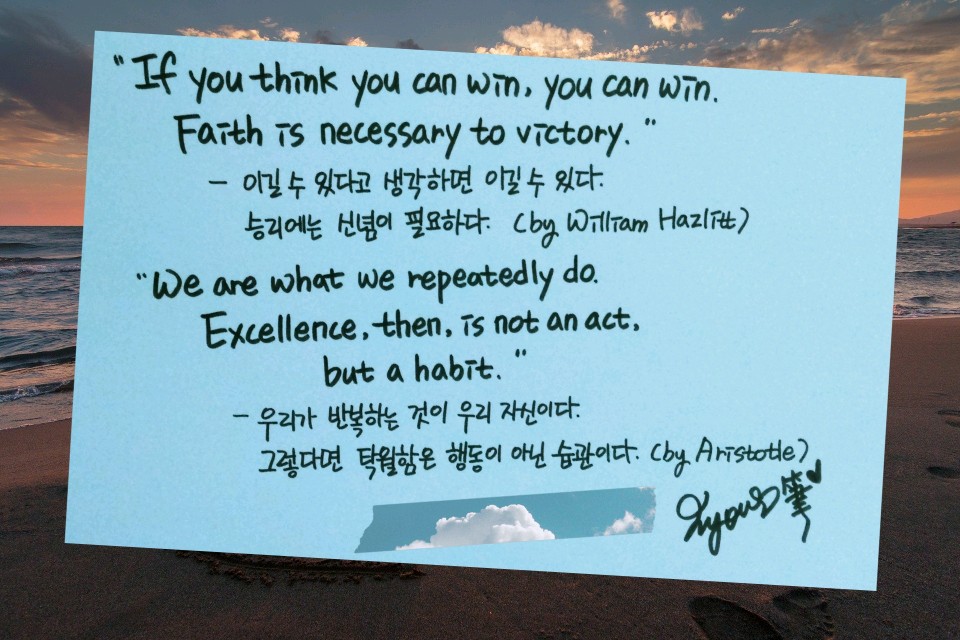 "If you think you can win, you can win.
Faith is necessary to victory."
- 이길 수 있다고 생각하면 이길 수 있다.
승리에는 신념이 필요하다. (by William Hazlitt)
"We are what we repeatedly do.
Excellence, then, is not an act,
but a habit."
- 우리가 반복하는 것이 우리 자신이다.
그렇다면 탁월함은 행동이 아닌 습관이다. (by Aristotle)